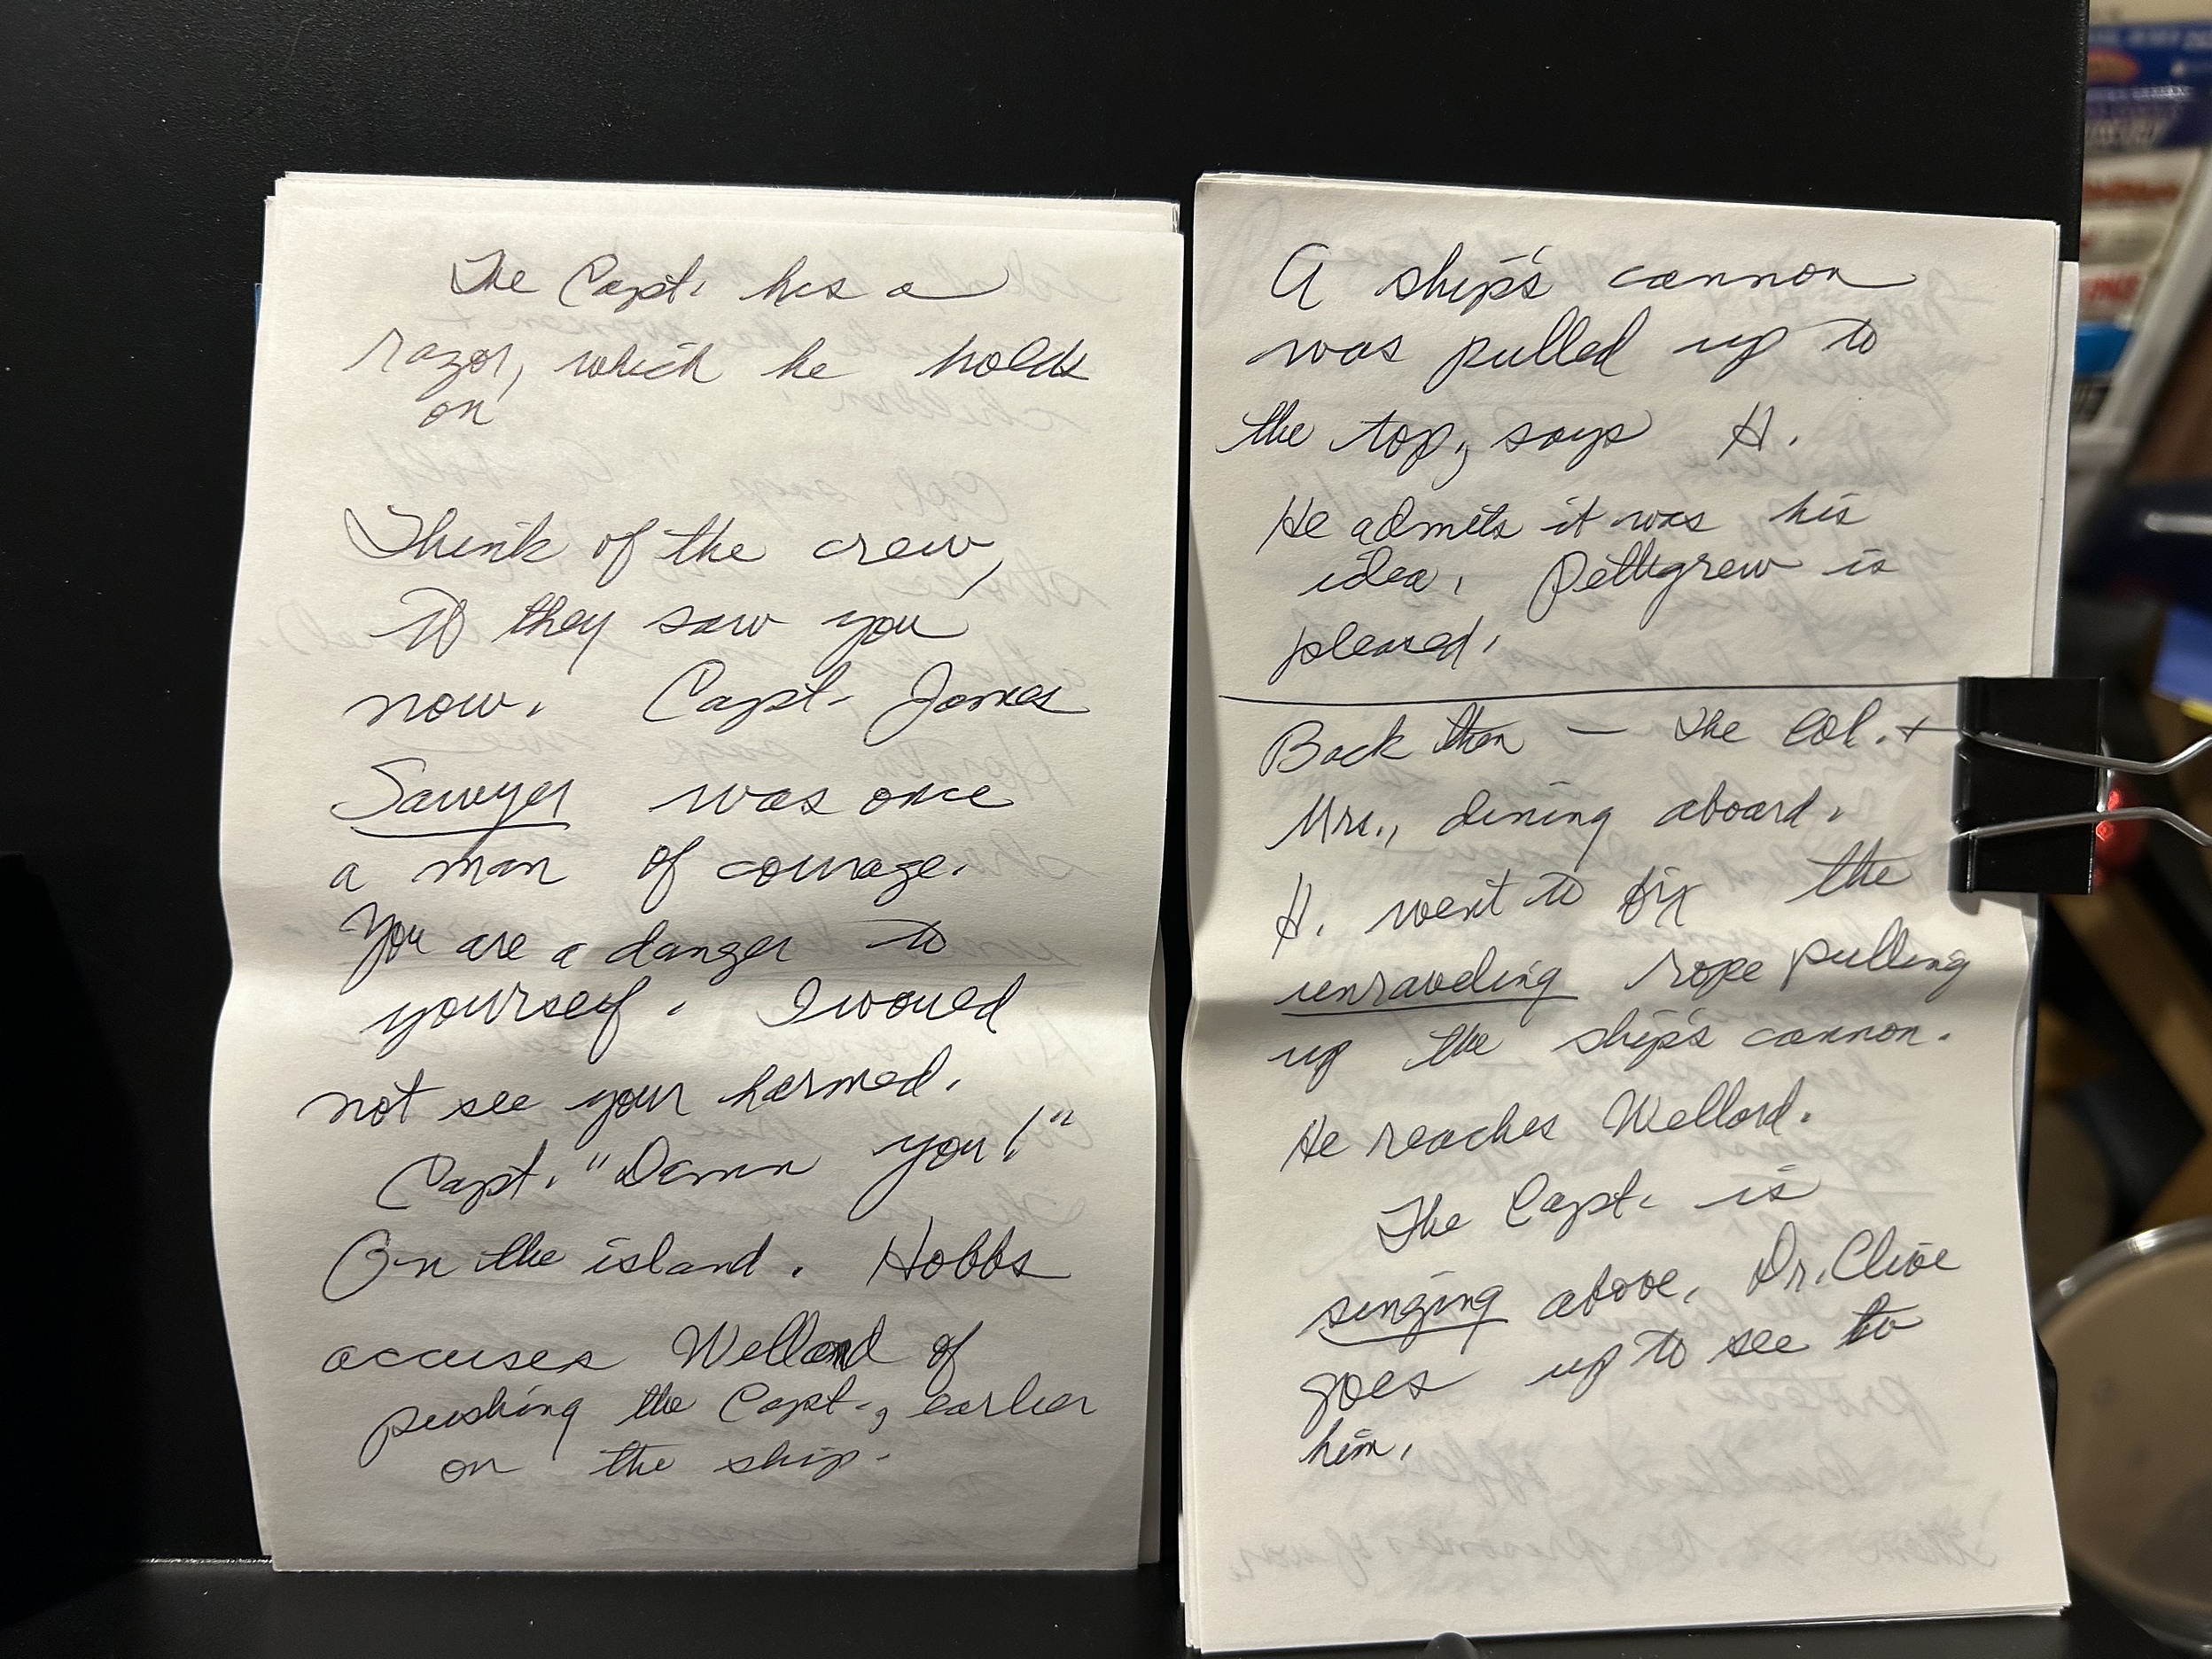 The Capt. has a
razor, which he holds
on
Think of the crew,
If they saw you
now. Capt. James
Sawyer was once
a man of courage.
You are a danger to
yourself. I would
not see your harmed.
Capt. "Damn you!"
On the island. Hobbs
accuses Wellard of
pushing the Capt., earlier
on the ship.
A ship's cannon
was pulled up to
the top, says H.
He admits it was his
idea. Pettigrew is
pleased.
Back then — The Col. +
Mrs., dining aboard.
H. went to fix the
unraveling rope pulling
up the ship's cannon.
He reaches Wellard.
The Capt. is
singing above. Dr. Clive
goes up to see to
him.